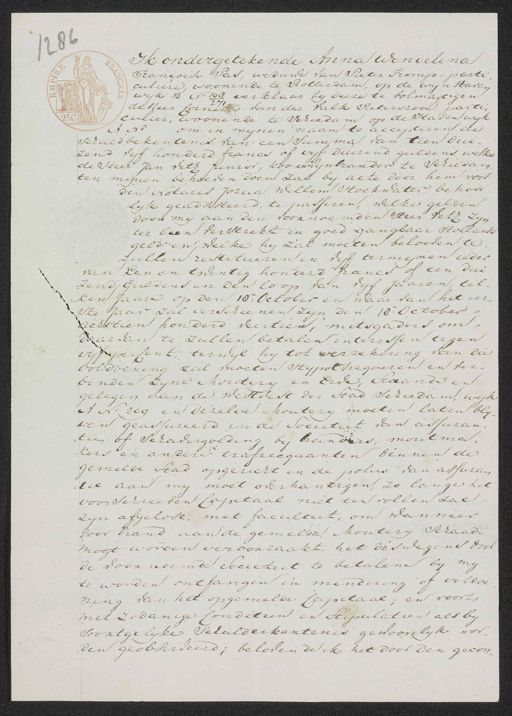 1286
EMPIRE FRANÇAIS
25C.
Ik ondergetekende Anna Wendelina
Francoise Pas, weduwe van Pieter Tromp, parti-
culiere, woonende te Rotterdam, op de wynhaven
wyk B N° verklaar by deeze te volmachtigen
de Heer van der Valk Pietersoon, parti-
culier, woonende te Schiedam, op de
N° om in mynen naam te accepteren de
Schuldbekentenis van een Summa van tien dui-
zend vyf honderd francs of vyf duizend guldens welke
de Heer Jan junior korenwynbrander te Schiedam
ten mynen behoeve doen zal by acte door hem voor
den Notaris Josua Willem behoor-
lyk geadsisteerd, te passeeren, welke gelden
door my aan den voornoemden Heer zyn
ter leen verstrekt in goed gangbaar Hollandsch
geld en welke hy zal moeten belooven te
zullen restitueeren in vyf termynen ieder
van een en twintig honderd francs of een dui-
zend guldens in den loop van vyf jaaren, tel-
ken jaare op den 18 October en waar van het eer-
ste jaar zal verscheenen zyn den 18 October
agttien honderd veertien, mitsgaders om
daarvan te zullen betalen interessen tegen
vyf pr Cent, terwyl hy tot verzekering van die
voldoening zal moeten Hypothequeren en ver-
binden zyne Moutery en Erve, staande en
gelegen aan de Westvest der Stad Schiedam, wyk
N° 209 en dezelve Moutery moeten laten bly-
ven geassureerd in de Societeit van assuran-
tie of Schadevergoeding by branders, moutma-
kers en andere trafieequanten binnen de
gemelde Stad opgericht en de polis van assuran-
tie aan my moet overhandigen zo lange het
voorschreeven Capitaal niet ten vollen zal
zyn afgelost, met faculteit, om wanneer
door brand aan de gemelde Moutery schaade
mogt worden veroorzaakt, het des wegens door
de voornoemde societeit te betalen by my
te worden ontfangen in mindering of voldoe-
ning van het opgemelde Capitaal; en voorts
met zodanige Conditien en Stipulatien als by
soortgelyke Schuldbekentenis gewoonlyk wor-
den geobserveerd; belovende ik het door den gecon-